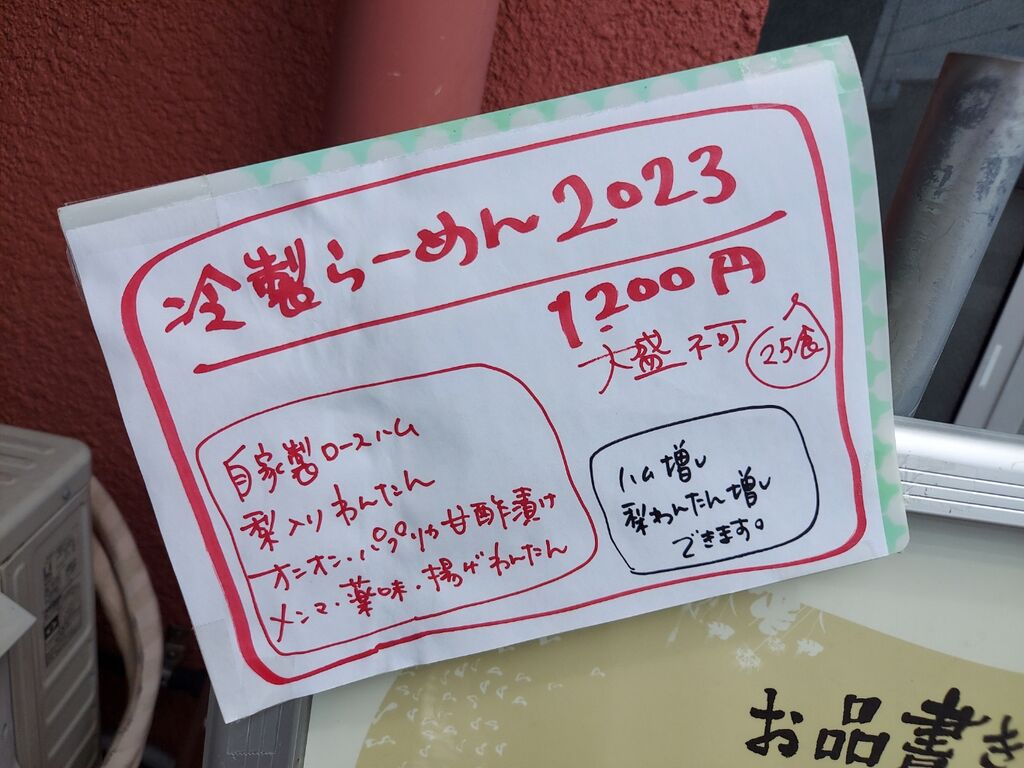 冷製らーめん2023
1200円
大盛不可
25食
自家製ロースハム
梨入りわんたん
オニオン・パプリカ甘酢漬け
メンマ・薬味・揚げわんたん
ハム増し
梨わんたん増し
できます。
お品書き